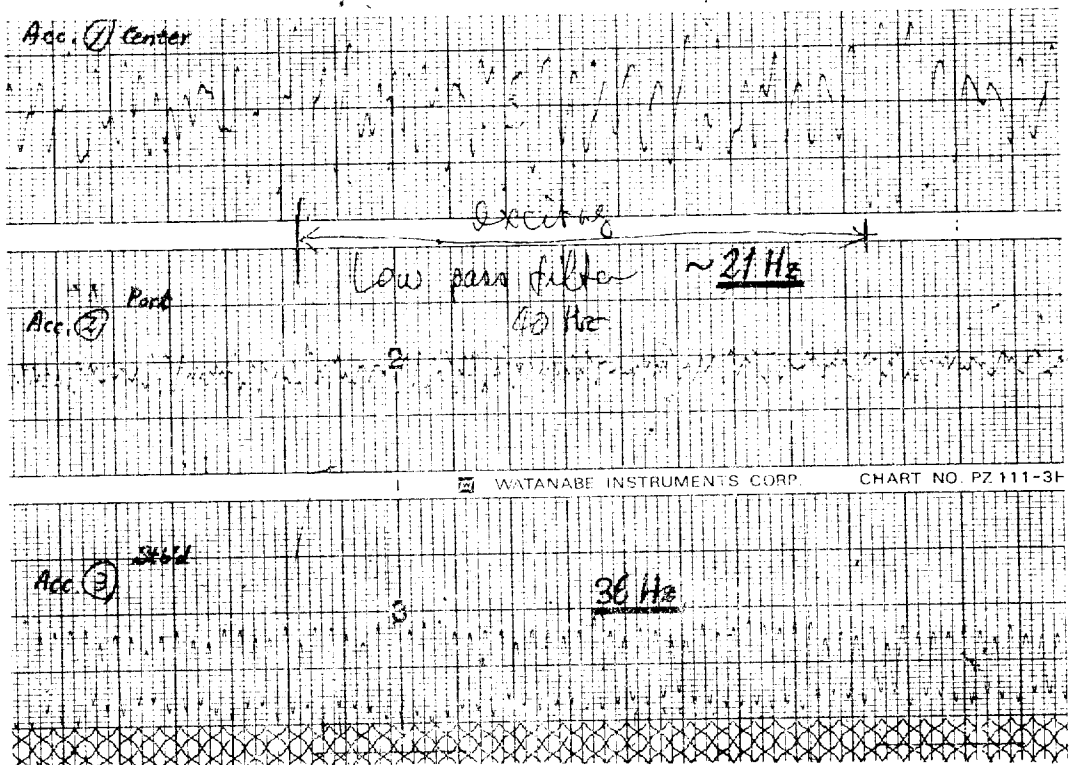 Acc. ① Center
exciting
Low pass filter
~21 Hz
40 Hz
Port
Acc. ②
2
WATANABE INSTRUMENTS CORP. CHART NO. PZ 111-3H
Stb'd
Acc. ③
3
36 Hz